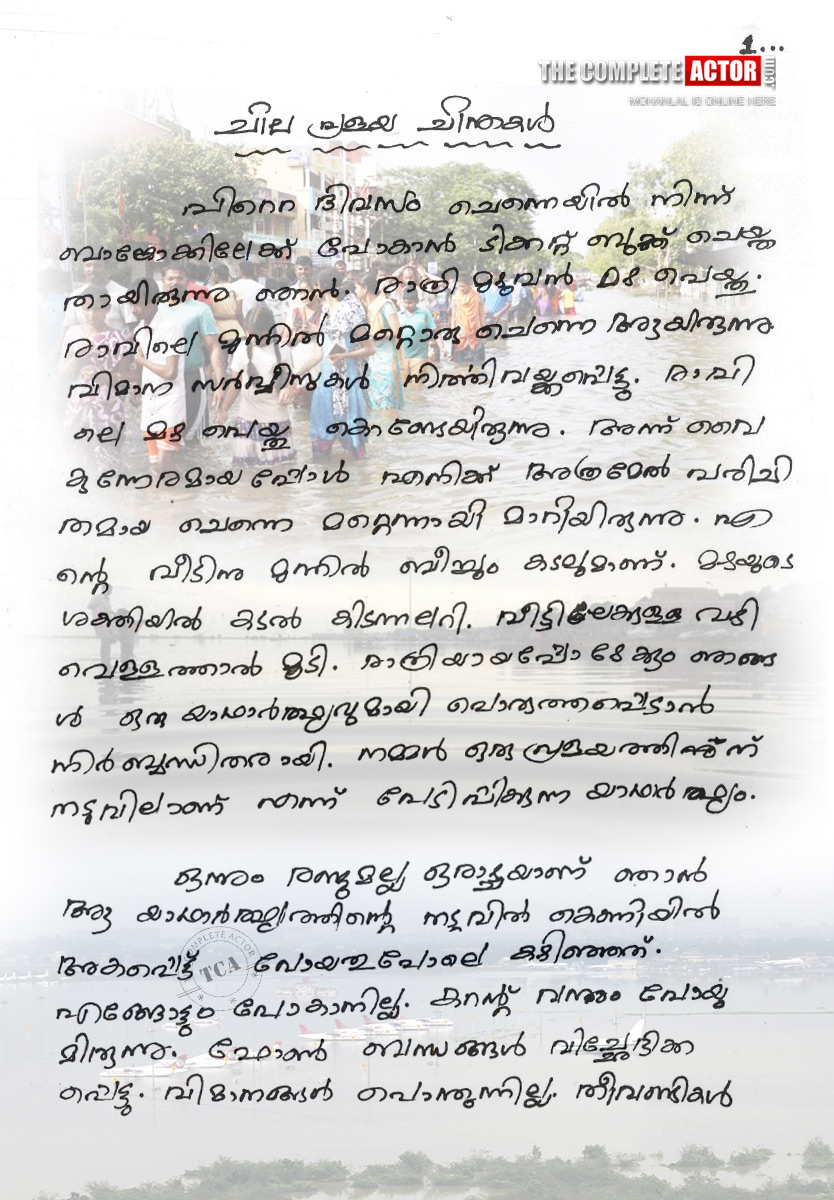 1...
THE COMPLETE ACTOR .com
MOHANLAL IS ONLINE HERE
ചില പ്രളയ ചിന്തകൾ
പിറ്റെ ദിവസം ചെന്നെയിൽ നിന്ന്
ബാങ്കോക്കിലേക്ക് പോകാൻ ടിക്കറ്റ് ബുക്ക് ചെയ്ത
തായിരുന്നു ഞാൻ. രാത്രി മുഴുവൻ മഴ പെയ്തു.
രാവിലെ മുന്നിൽ മറ്റൊരു ചെന്നെ ആയിരുന്നു
വിമാന സർവ്വീസുകൾ നിർത്തിവയ്ക്കപ്പെട്ടു. രാവി
ലെ മഴ പെയ്തു കൊണ്ടേയിരുന്നു. അന്ന് വൈ
കുന്നേരമായപ്പോൾ എനിക്ക് അത്രമേൽ പരിചി
തമായ ചെന്നെ മറ്റെന്നായി മാറിയിരുന്നു. എ
ന്റെ വീടിനു മുന്നിൽ ബീച്ചും കടലുമാണ്. മഴയുടെ
ശക്തിയിൽ കടൽ കിടന്നലറി. വീട്ടിലേക്കുള്ള വഴി
വെള്ളത്താൽ മൂടി. രാത്രിയായപ്പോഴേക്കും ഞങ്ങ
ൾ ഒരു യാഥാർത്ഥ്യവുമായി പൊരുത്തപ്പെടാൻ
നിർബ്ബന്ധിതരായി. നമ്മൾ ഒരു പ്രളയത്തിന്
നടുവിലാണ് എന്ന് പേടിപ്പിക്കുന്ന യാഥാർത്ഥ്യം.
ഒന്നും രണ്ടുമല്ല ഒരാഴ്ചയാണ് ഞാൻ
ആ യാഥാർത്ഥ്യത്തിന്റെ നടുവിൽ കെണിയിൽ
അകപ്പെട്ട് പോയതുപോലെ കഴിഞ്ഞത്.
എങ്ങോട്ടും പോകാനില്ല. കറന്റ് വന്നും പോയു
മിരുന്നു. ഫോൺ ബന്ധങ്ങൾ വിച്ഛേദിക്ക
പ്പെട്ടു. വിമാനങ്ങൾ പൊന്തുന്നില്ല. തീവണ്ടികൾ
COMPLETE ACTOR
TCA